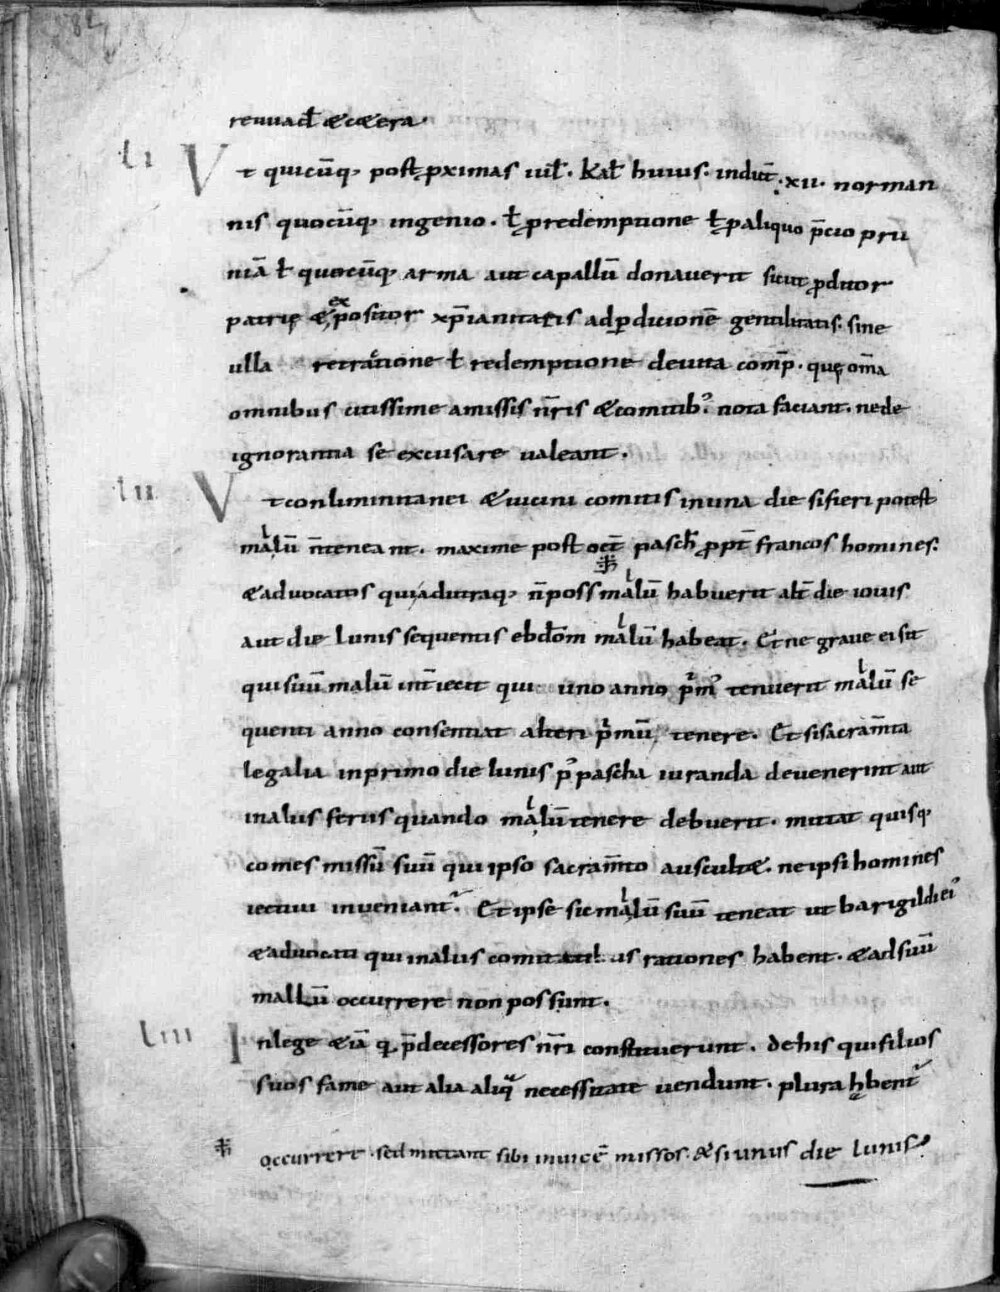 reuuad̄ & c&era.
li Vt quicūq; post p̱ximas iul̄. kal̄ huius. indict̄. xii. norman
nis quocūq; ingenio. ł p̱ redemptione ł p̱ aliquo p̄cio bru
niā ł quēcūq; arma aut caballū donauerit sicut p̱ditor
patrię & expositor xp̄ianitatis ad p̱dicionē gentilitatis. sine
ulla retractione ł redemptione de uita comp̄. quę om̄a
omnibus citissime a missis n̄ris & comitib; nota faciant. ne de
ignorantia se excusare ualeant.
lii Vt conlimintanei & uicini comitis in una die si fieri potest
mallū n̄ teneant. maxime post oct̄ pasch̄ p̱pt̄ francos homines.
& aduocatos qui ad utraq; n̄ poss mallū habuerit alt̄ die iouis
aut die lunis sequentis ebdom̄ mallū habeat. Et ne graue ei sit
qui suū malū int̄iecit qui uno anno p̄m; tenuerit mallū se
quenti anno consentiat alteri p̄mū tenere. Et si sacram̄ta
legalia in primo die lunis p; pascha iuranda deuenerint aut
in alus feriis quando mallū tenere debuerit. mittat quisq;
comes missū suū qui ipso sacram̄to auscult&. ne ipsi homines
iectiui inueniant̄. Et ipse sic mallū suū teneat ut barigildi ei;
& aduocati qui in alus comitatibus rationes habent. & ad suū
mallū occurrere non possunt.
liii In lege &iā q̄ p̄decessores n̄ri constituerunt. de his qui filios
suos fame aut alia aliq̄ necessitate uendunt. plura hbent̄
occurrere. sed mittant sibi inuicē missos. & si unus die lunis.